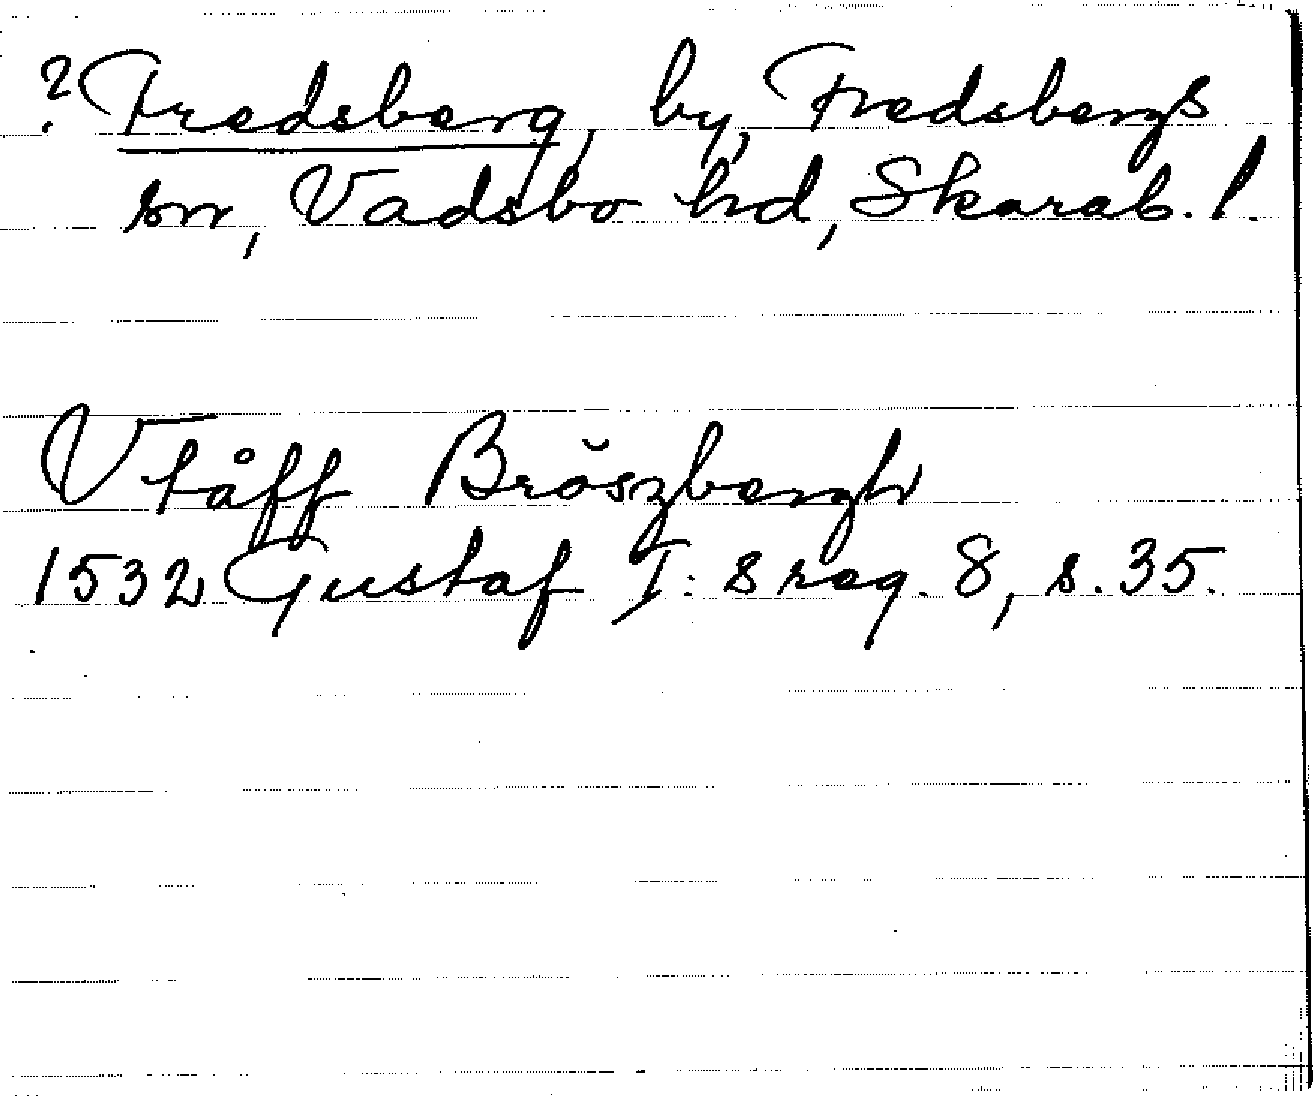 ? Fredsberg, by, Fredsbergs
sn, Vadsbo hd, Skarab. l.
Vtåff Bröszbergh
1532 Gustaf I: s reg. 8, s. 35.